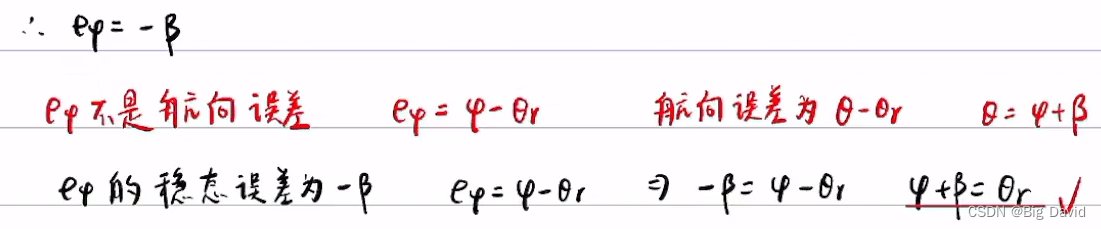 ∴ eφ = -β
eφ不是航向误差 eφ = φ - θr 航向误差为 θ - θr θ = φ + β
eφ的稳态误差为 -β eφ = φ - θr ⇒ -β = φ - θr φ + β = θr ✓
CSDN @Big David